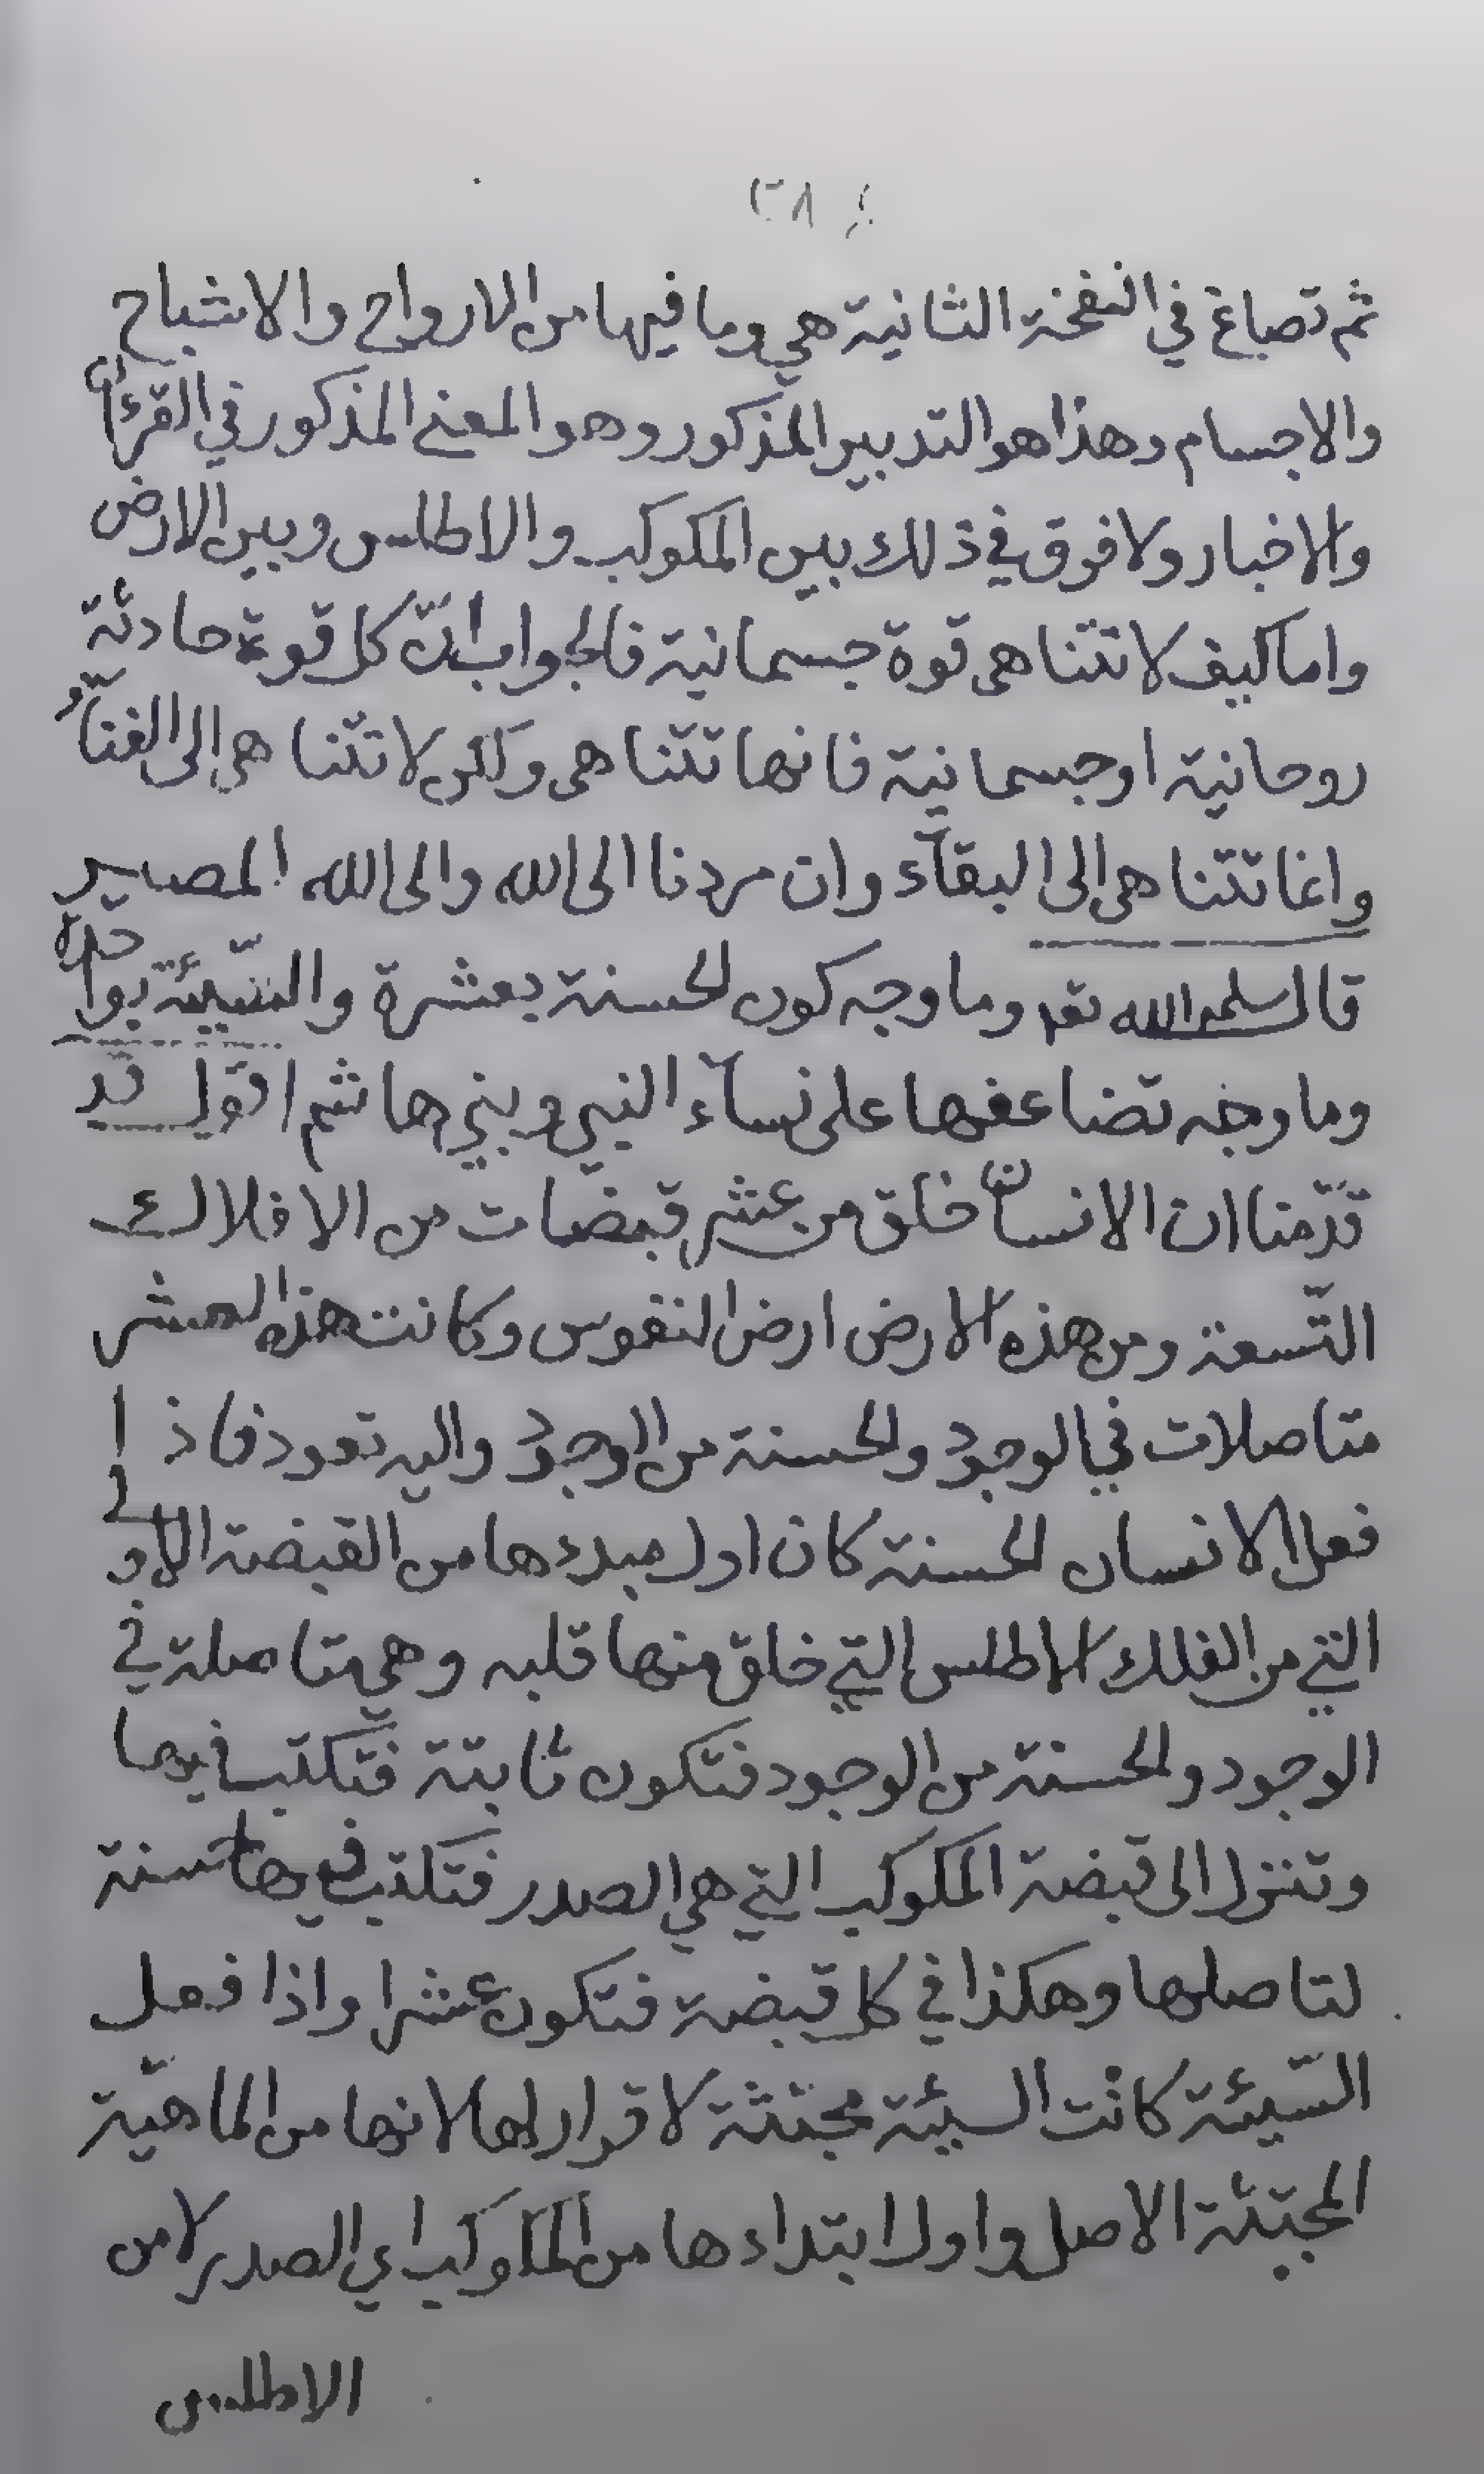 ٢٨
ثم تصاغ في النفخة الثانية هي وما فيها من الارواح والاشباح
والاجسام وهذا هو التدبير المذكور وهو المعنى المذكور في القرءان
والاخبار ولا فرق في ذلك بين المكوكب والاطلس وبين الارض
واما كيف لا تتناهى قوة جسمانية فالجواب انّ كل قوة حادثة
روحانية او جسمانية فانها تتناهى ولكن لا تتناهى الى الفناء
وانما تتناهى الى البقآء وان مردنا الى الله والى الله المصير
قال سلمه الله تعالى وما وجه كون الحسنة بعشرة والسّيئة بواحدة
وما وجه تضاعفها على نسآء النبي وبني هاشم اقول قد
قدّمنا ان الانسان خلق من عشر قبضات من الافلاك
التّسعة ومن هذه الارض ارض النفوس وكانت هذه العشر
متاصلات في الوجود والحسنة من الوجود واليه تعود فاذا
فعل الانسان الحسنة كان اول مبدءها من القبضة الاولى
التي من الفلك الاطلس التي خلق منها قلبه وهي متاصلة في
الوجود والحسنة من الوجود فتكون ثابتة فتكتب فيها
وتنزل الى قبضة المكوكب التي هي الصدر فتكتب فيها حسنة
لتاصلها وهكذا في كل قبضة فتكون عشرا واذا فعل
السّيئة كانت السيئة مجتثة لا قرار لها لانها من الماهيّة
المجتثة الاصل واول ابتداءها من المكوكب اي الصدر لا من
الاطلس